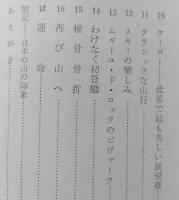 10 クーポー——世界で最も美しい展望臺
11 クラシックな山行
12 スキーの楽しみ
13 エギーユ・ド・ロックのビヴァーク
14 わけなく初登攀
15 椎骨骨折
16 再び山へ
17 運命
附記——日本の山の印象
あとがき